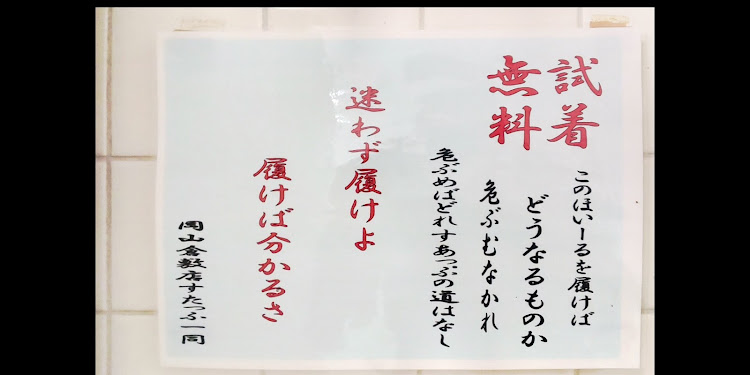 試着
無料
このほいーるを履けば
どうなるものか
危ぶむなかれ
危ぶめばどれすあっぷの道はなし
迷わず履けよ
履けば分かるさ
岡山倉敷店すたっふ一同